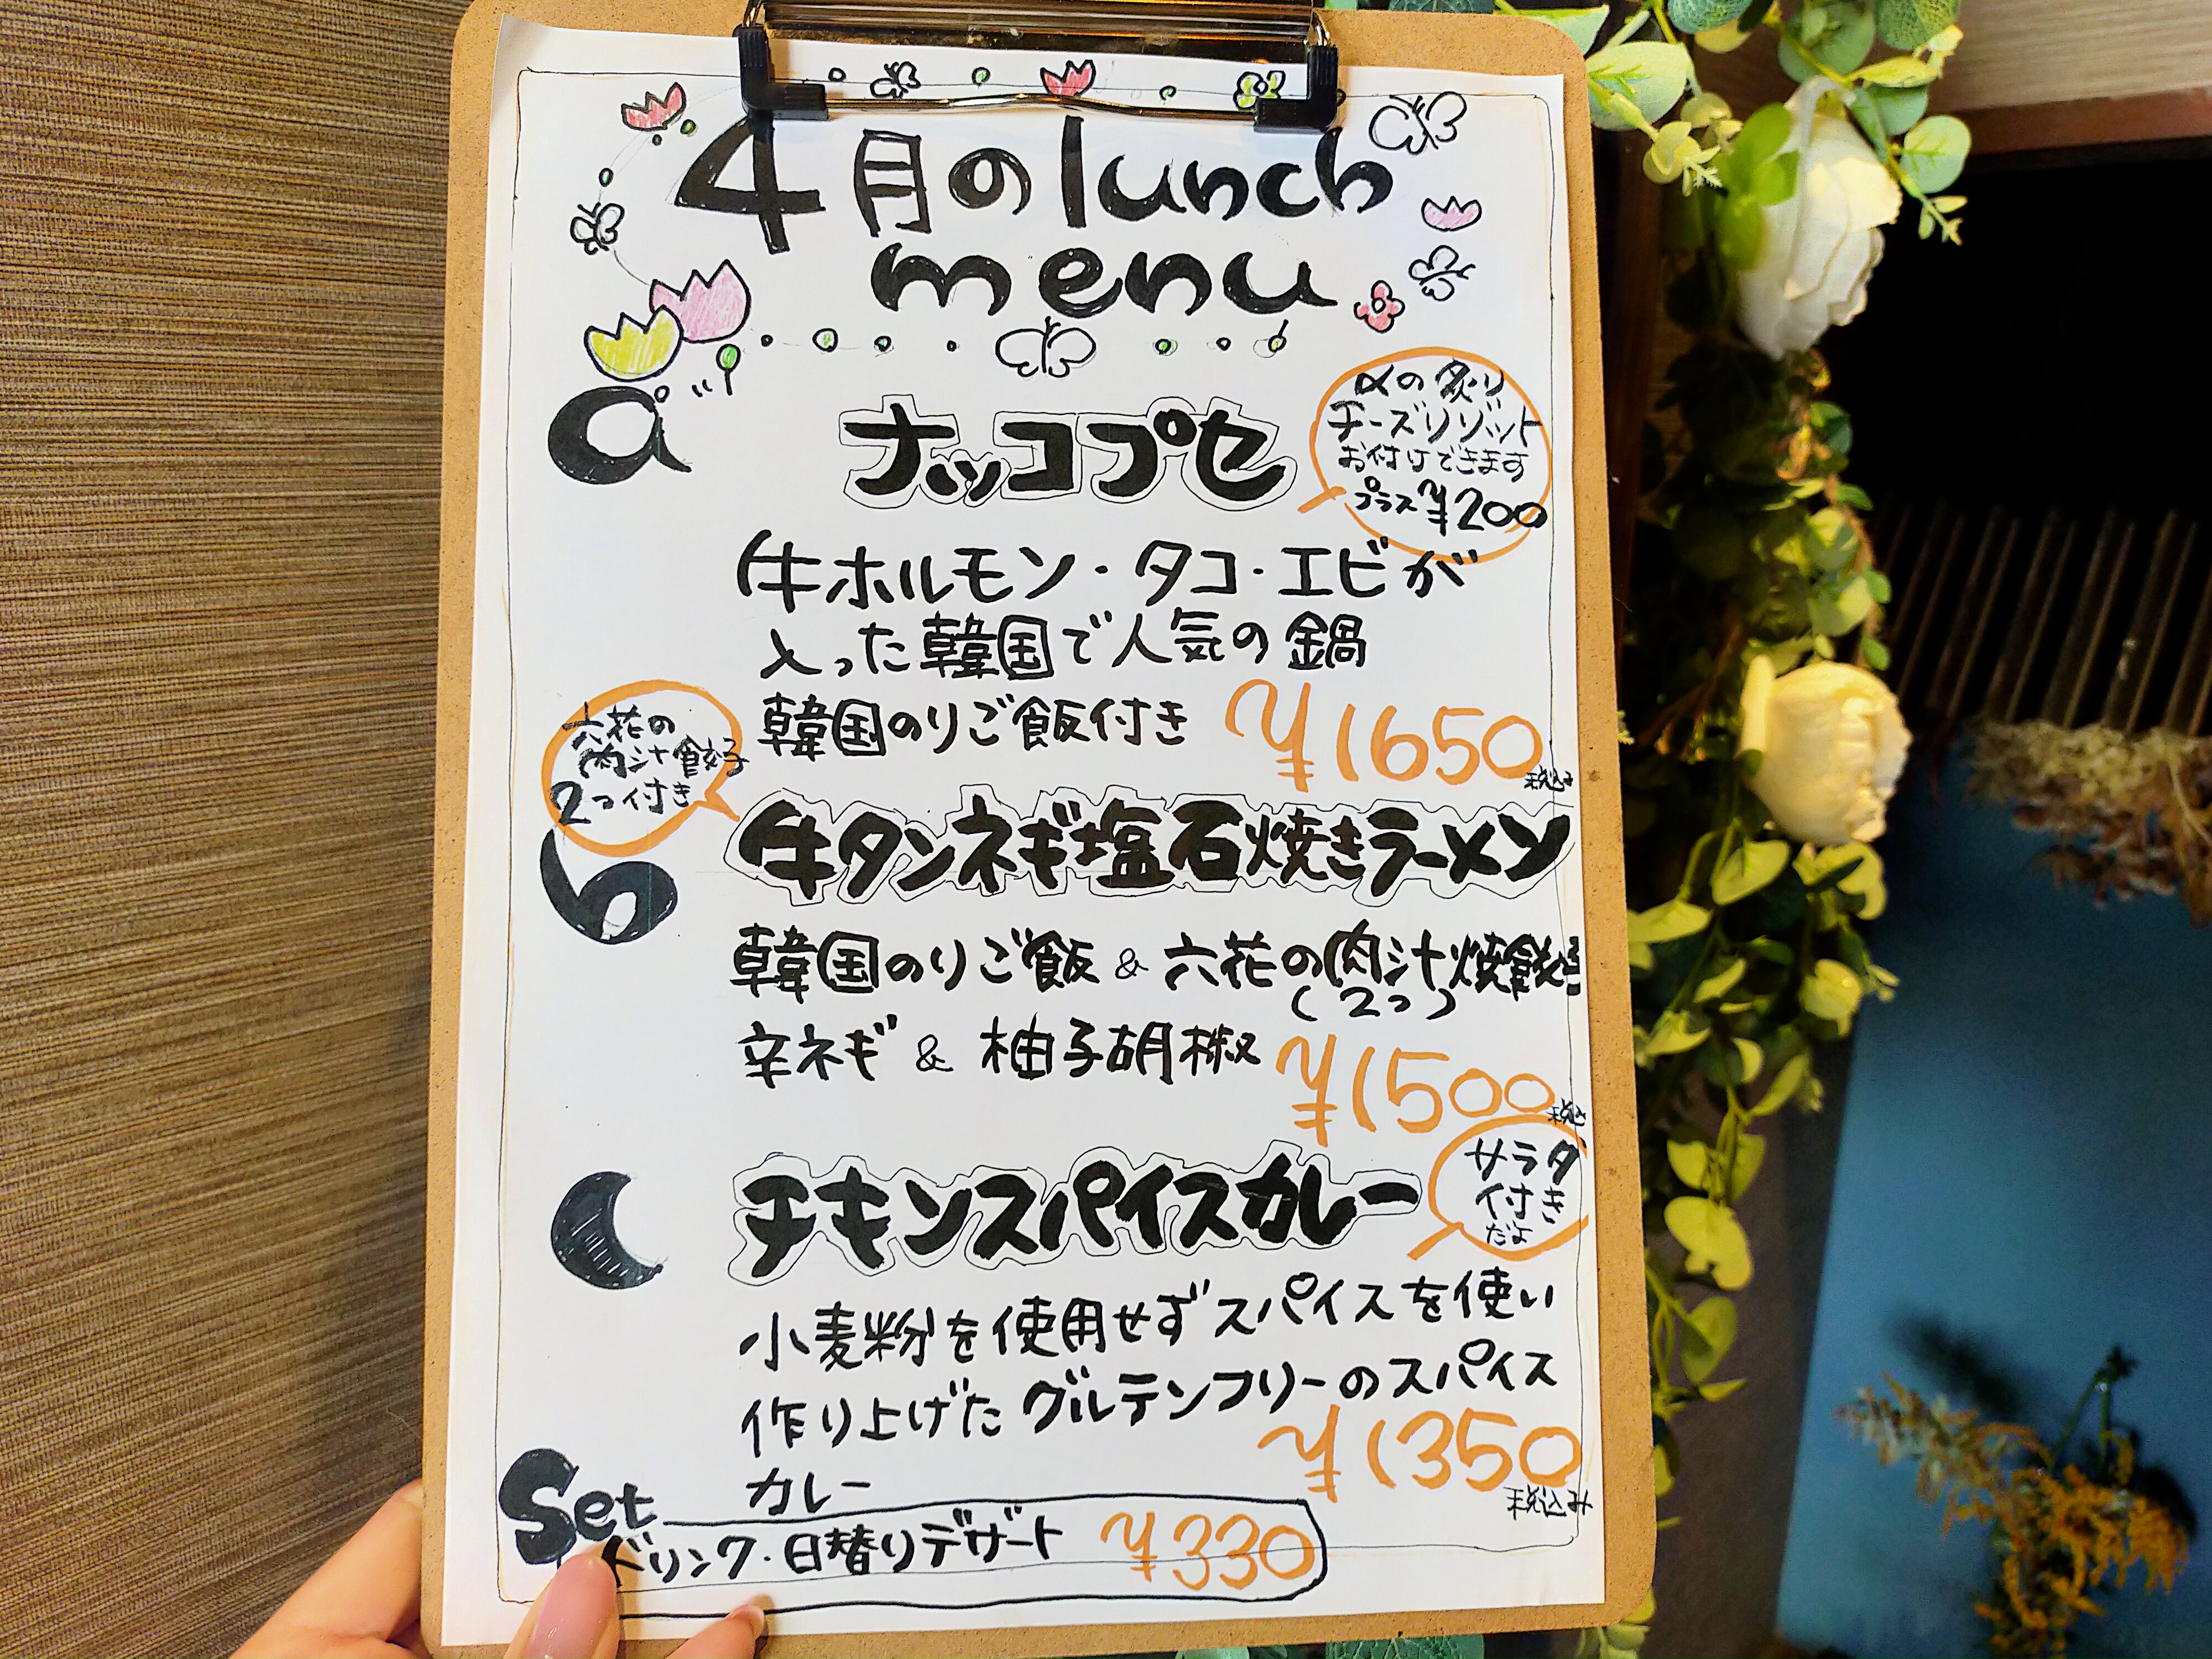 4月のlunch
menu
a
ナッコプセ
αの炙り
チーズリゾット
お付けできます
プラス¥200
牛ホルモン・タコ・エビが
入った韓国で人気の鍋
韓国のりご飯付き ¥1650
税込み
六花の
肉汁餃子
2つ付き
b
牛タンネギ塩石焼きラーメン
韓国のりご飯 & 六花の肉汁焼餃子
(2つ)
辛ネギ & 柚子胡椒 ¥1500
税込
c
チキンスパイスカレー
サラダ
付き
だよ
小麦粉を使用せずスパイスを使い
作り上げたグルテンフリーのスパイス
カレー
¥1350
税込み
Set
ドリンク・日替りデザート ¥330